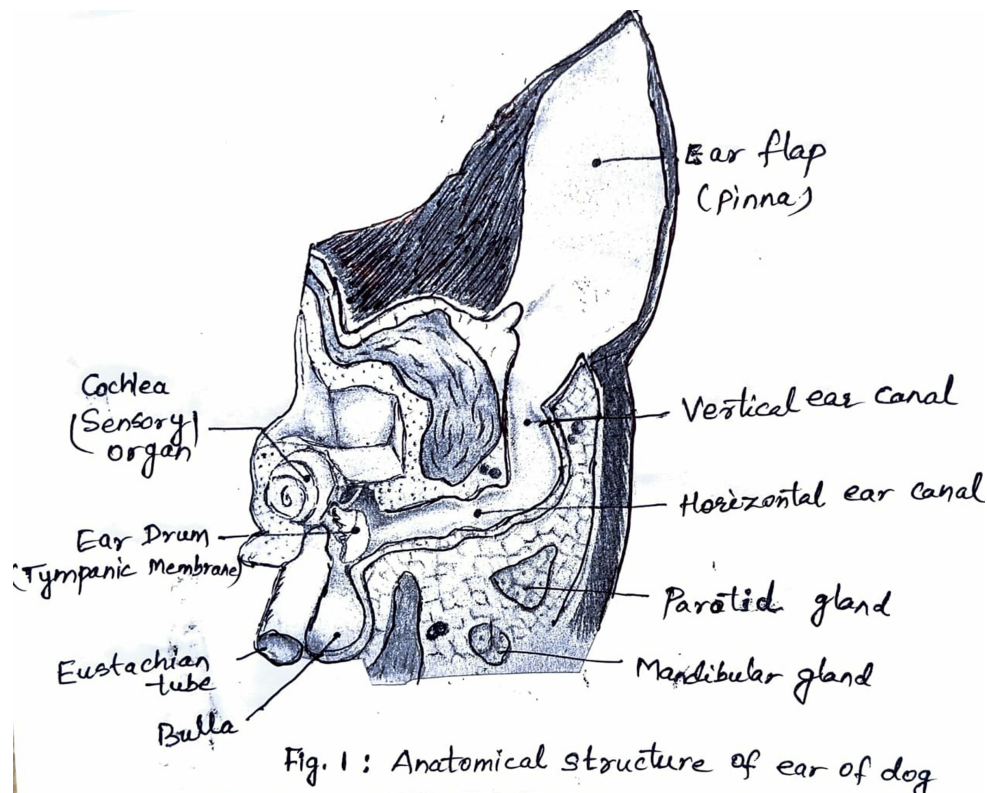 Ear flap
(Pinna)
Cochlea
(Sensory)
organ
Vertical ear canal
Horizontal ear canal
Ear Drum
(Tympanic Membrane)
Parotid gland
Mandibular gland
Eustachian
tube
Bulla
Fig. 1 : Anatomical structure of ear of dog